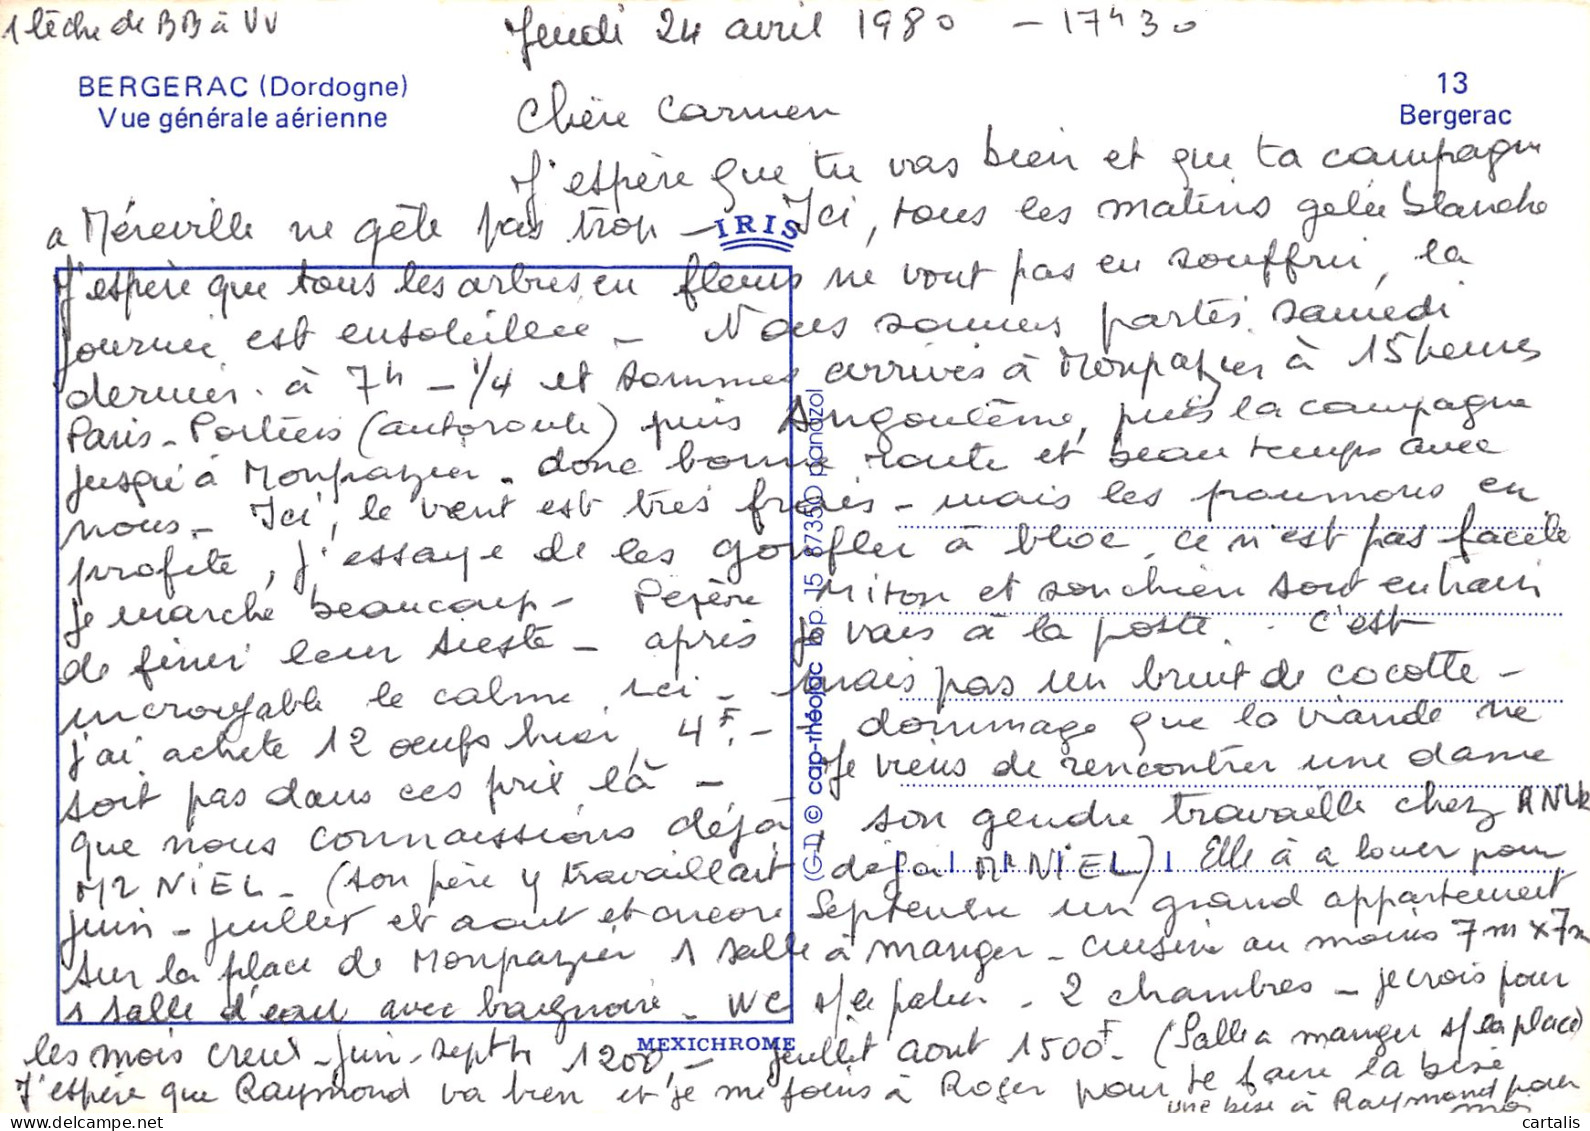 1 lèche de BB à VV
Jeudi 24 avril 1980 - 17H30
BERGERAC (Dordogne)
Vue générale aérienne
13
Bergerac
Chère Carmen
J'espère que tu vas bien et que ta campagne
a Méréville ne gèle pas trop - Ici, tous les matins gelée blanche
IRIS
J'espère que tous les arbres en fleurs ne vont pas en souffrir, la
journée est ensoleillée - Nous sommes partis samedi
dernier à 7h - 1/4 et sommes arrivés à Monpazier à 15 heures
Paris - Poitiers (autoroute) puis Angoulême, puis la campagne
jusqu'à Monpazier - donc bonne route et beau temps avec
nous - Ici, le vent est très frais - mais les poumons en
profite, j'essaye de les gonfler à bloc, ce n'est pas facile
je marche beaucoup - Pépère Miton et son chien sont en train
de finir leur sieste - après je vais à la poste. C'est
incroyable le calme ici - mais pas un bruit de cocotte -
j'ai acheté 12 oeufs hier, 4F. - dommage que la viande ne
soit pas dans ces prix là - Je viens de rencontrer une dame
que nous connaissions déjà, son gendre travaille chez
Mr NIEL - (son père y travaillait déjà Mr NIEL) Elle a à louer pour
juin - juillet et aout et encore Septembre un grand appartement
sur la place de Monpazier 1 salle à manger - cuisine au moins 7m x 7m
1 salle d'eau avec baignoire - WC s/le palier - 2 chambres - je crois pour
les mois creux - juin - septbre 1200, - juillet aout 1500F - (Salle a manger s/la place)
J'espère que Raymond va bien et je me joins à Roger pour te faire la bise
une bise à Raymond pour
moi
MEXICHROME
(G.D) © cap-théojac b.p. 15 87350 panazol